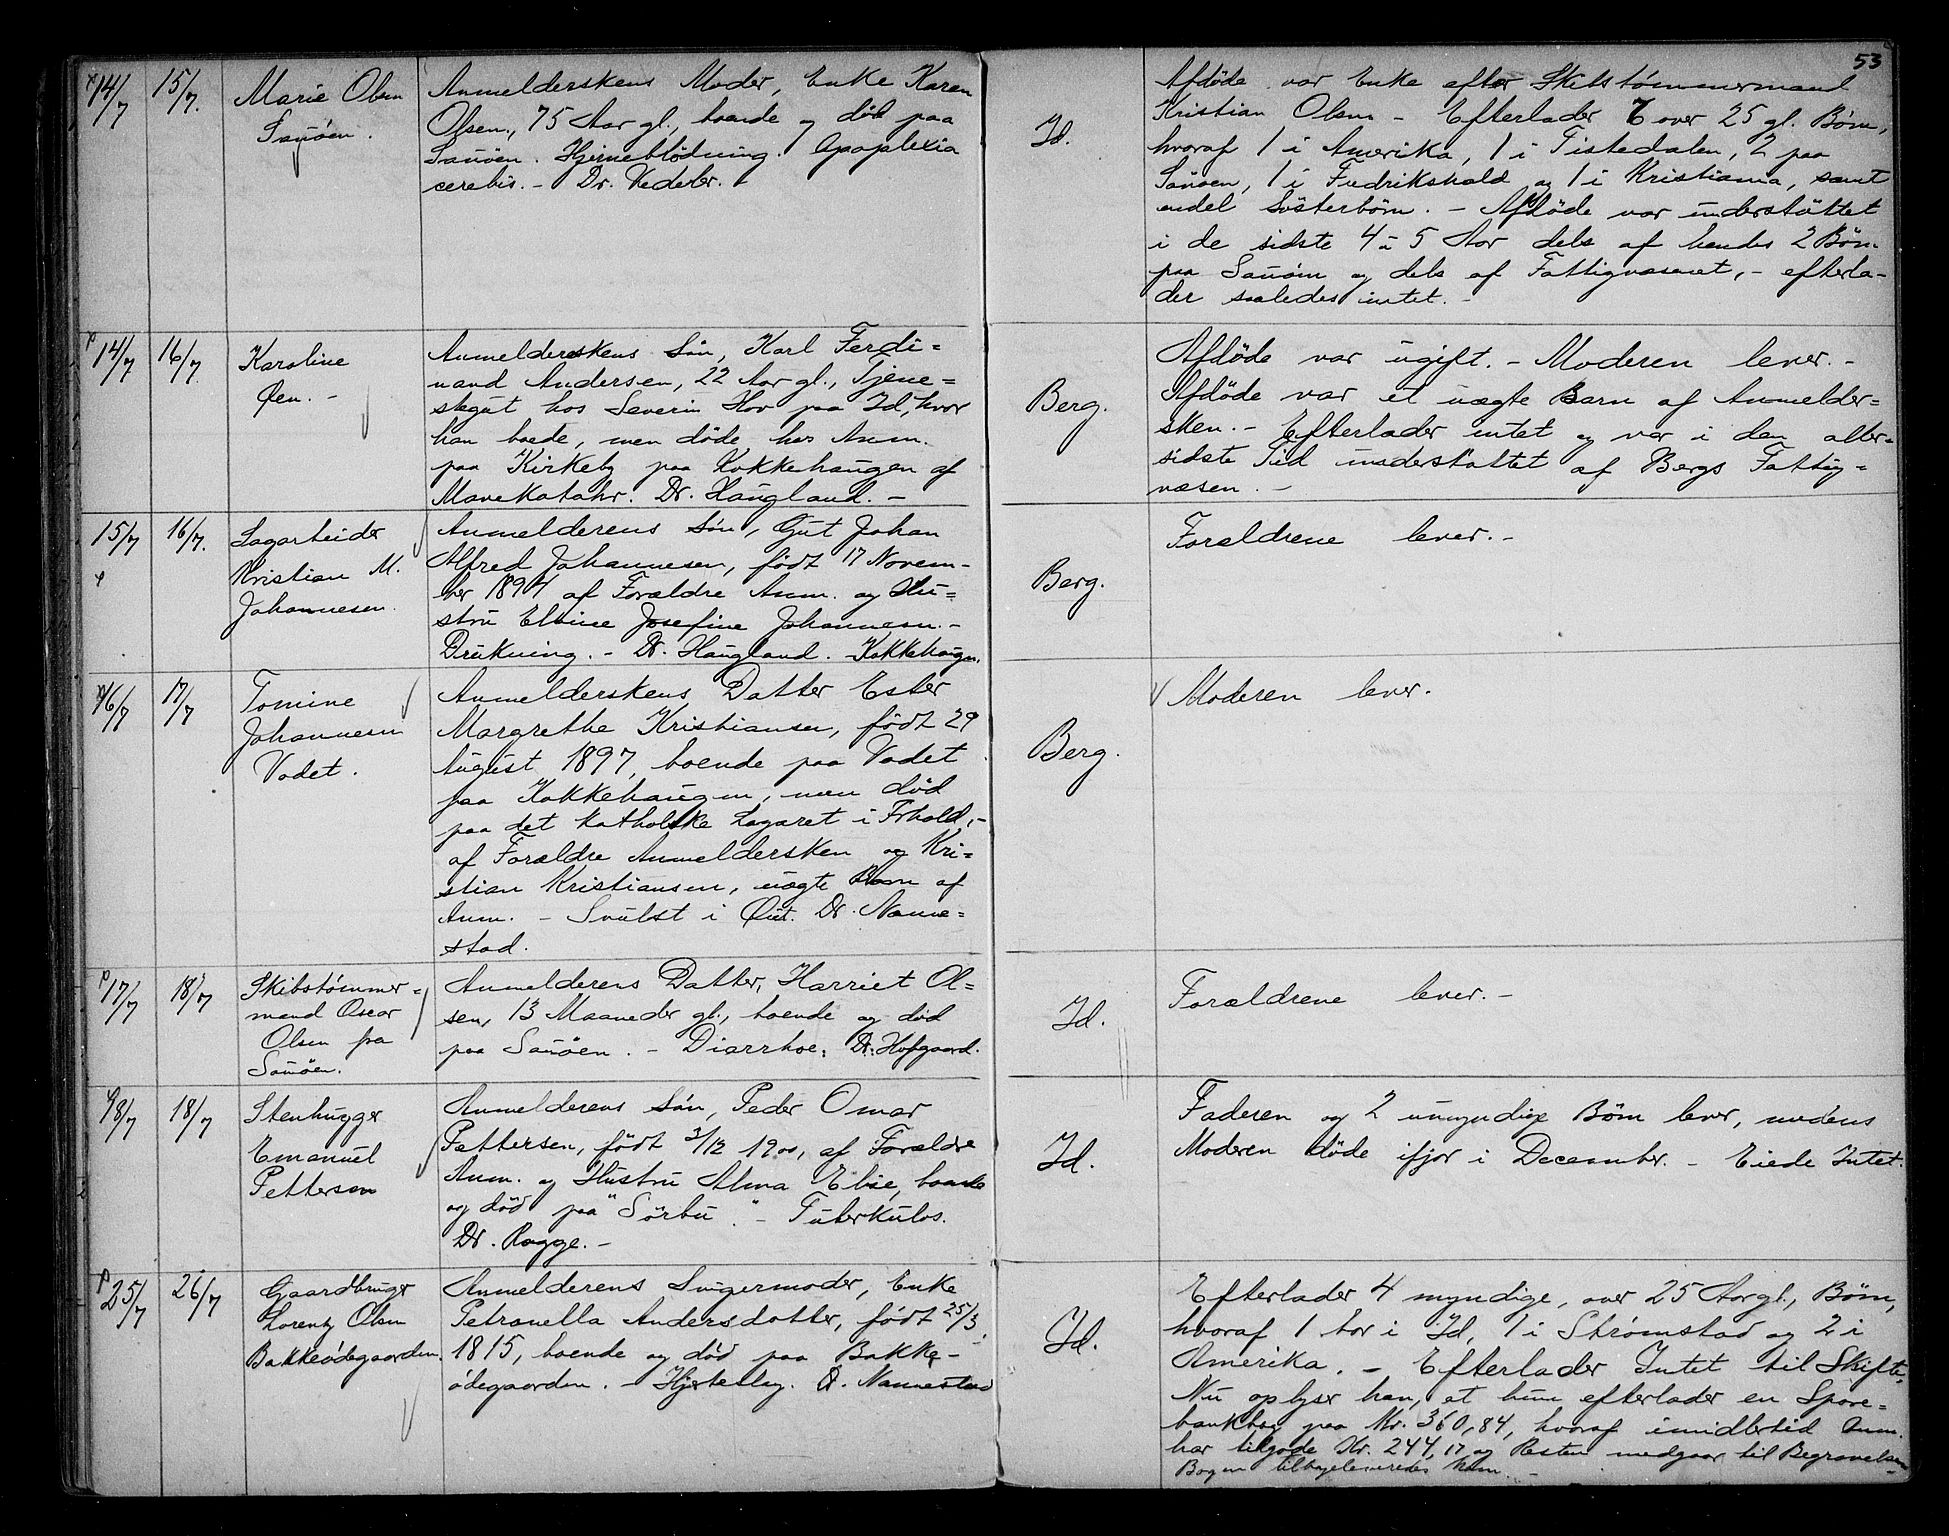 53
14/7 15/7. Marie Olsen
Sauøen.
Anmelderskens Moder, Enke Karen
Olsen, 75 Aar gl., boende og död paa
Sauöen. Hjerneblödning. Apoplexia
cerebis. - Dr. Vedeler.
Id.
Afdöde var Enke efter Skibstömmermand
Kristian Olsen - Efterlader 7 over 25 gl. Börn,
hvoraf 1 i Amerika, 1 i Tistedalen, 2 paa
Sauöen, 1 i Fredrikshald og 1 i Kristiania, samt
endel Sösterbörn. - Afdöde var understöttet
i de sidste 4 a 5 Aar dels af hendes 2 Börn
paa Sauöen og dels af Fattigvæsenet, - efterla-
der saaledes intet. -
14/7 16/7. Karoline
Øen. -
Anmelderskens Sön, Karl Ferdi=
nand Andersen, 22 Aar gl., Tjene=
stegut hos Severin Hov paa Id, hvor
han boede, men döde hos Anm.
paa Kirkeby paa Kokkehaugen af
Mavekatahr. Dr. Haugland. -
Berg.
Afdöde var ugift. - Moderen lever. -
Afdöde var et uægte Barn af Anmelder=
sken. - Efterlader intet og var i den aller=
sidste Tid understöttet af Bergs Fattig=
væsen. -
15/7 16/7. Sagarbeider
Kristian M.
Johannesen.
Anmelderens Sön, Gut Johan
Alfred Johannesen, födt 17 Novem-
ber 1894 af Forældre Anm. og Hu=
stru Elvine Josefine Johannesen. -
Drukning. - Dr. Haugland. Kokkehaugen.
Berg.
Forældrene lever. -
16/7 17/7 Tomine
Johannesen
Vadet.
Anmelderskens Datter Ester
Margrethe Kristiansen, födt 29
August 1897, boende paa Vadet
paa Kokkehaugen, men död
paa det katholske Lazaret i Frhald, -
af Forældre Anmeldersken og Kri=
stian Kristiansen, uægte Barn af
Anm. - Svulst i Øiet. Dr. Nanne=
stad.
Berg.
Moderen lever.
17/7 18/7 Skibstömmer=
mand Oscar
Olsen fra
Sauöen.
Anmelderens Datter, Harriet Ol=
sen, 13 Maaneder gl., boende og död
paa Sauöen. - Diarrhoe. Dr. Hofgaard.
Id.
Forældrene lever. -
18/7 18/7 Stenhugger
Emanuel
Petterson
Anmelderens Sön, Peder Omar
Pettersen, födt 3/12 1900, af Forældre
Anm. og Hustru Alma Elise, boende
og död paa "Sörbu". - Tuberkulos.
Dr. Rogge. -
Id.
Faderen og 2 umyndige Börn lever, medens
Moderen döde ifjor i December. - Eiede Intet.
25/7 26/7 Gaardbruger
Lorentz Olsen
Bakkeödegaarden.
Anmelderens Svigermoder, Enke
Petronella Andersdatter, födt 25/3
1815, boende og död paa Bakke-
ödegaarden. - Hjertesleg. Dr. Nannestad
Id.
Efterlader 4 myndige, over 25 Aar gl., Börn,
hvoraf 1 bor i Id, 1 i Strømstad og 2 i
Amerika. - Efterlader Intet til Skifte.
Nu oplyser han, at hun efterlader en Spare=
bankbog paa Kr. 360,84, hvoraf imidlertid Anm.
har tilgode Kr. 244,17 og Resten medgaar til Begravelsen
Bogen tilbageleveredes ham. -